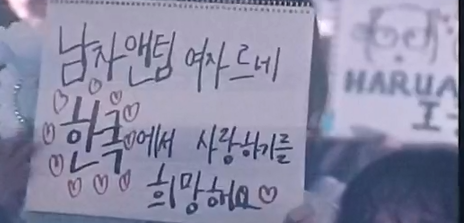 남자앤팁 여자르네
한국에서 사랑하기를
희망해요
HARUA
I